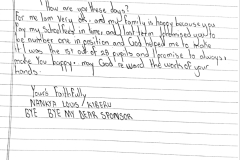 How are you these days?
For me Iam very ok. and my family is happy because you
Pay my school fees in time, and last term I promised you to
be number one in position and God helped me to make
it I was the 1st out of 28 pupils and I promise to always
make You happy. may God reward the work of your
hands.
Yours Faithfully
BYE BYE MY DEAR SPONSOR